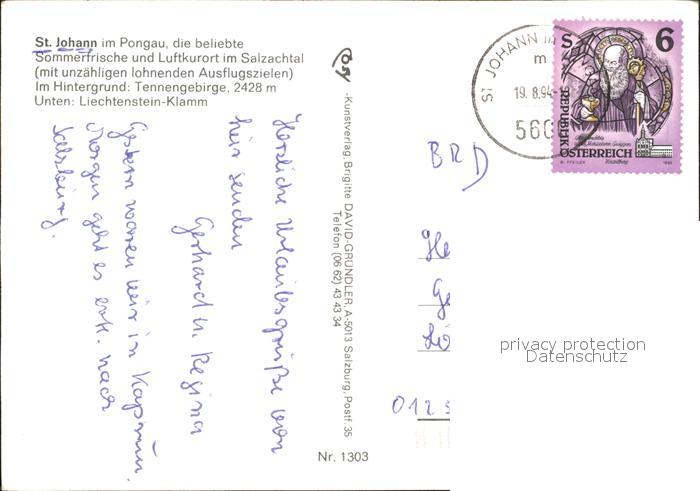 St. Johann im Pongau, die beliebte
Sommerfrische und Luftkurort im Salzachtal
(mit unzähligen lohnenden Ausflugszielen)
Im Hintergrund: Tennengebirge, 2428 m
Unten: Liechtenstein-Klamm
Herzliche Urlaubsgrüße von
hier senden
Gerhard u. Regina
Gestern waren wir in Kaprun.
Morgen geht es evtl. nach
Salzburg.
-Kunstverlag, Brigitte DAVID-GRUNDLER, A-5013 Salzburg, Postf. 35
Telefon (06 62) 43 43 34
Nr. 1303
ST. JOHANN im
19. 8.94
560
S 6
REPUBLIK
ÖSTERREICH
BRD
He
Ge
Lö
012
privacy protection
Datenschutz